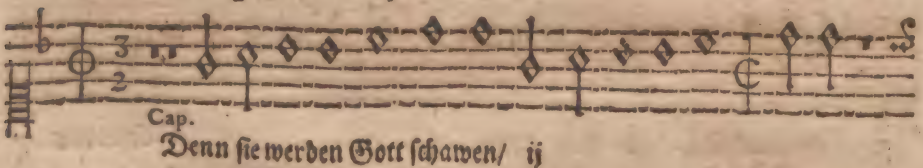 3
2
Cap.
Denn sie werden Gott schawen/ ij